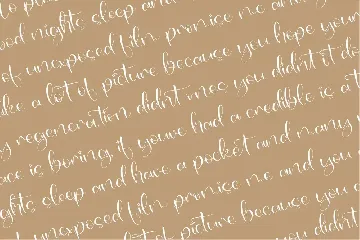 ood nights sleep and
of unexposed film promise me and
like a lot of picture because you hope your
regeneration didnt mee you didnt it di
ace is boring if youve had a credible is a l
nights sleep and have a pocket and many
of unexposed film promise me and you
of picture because you
you didnt